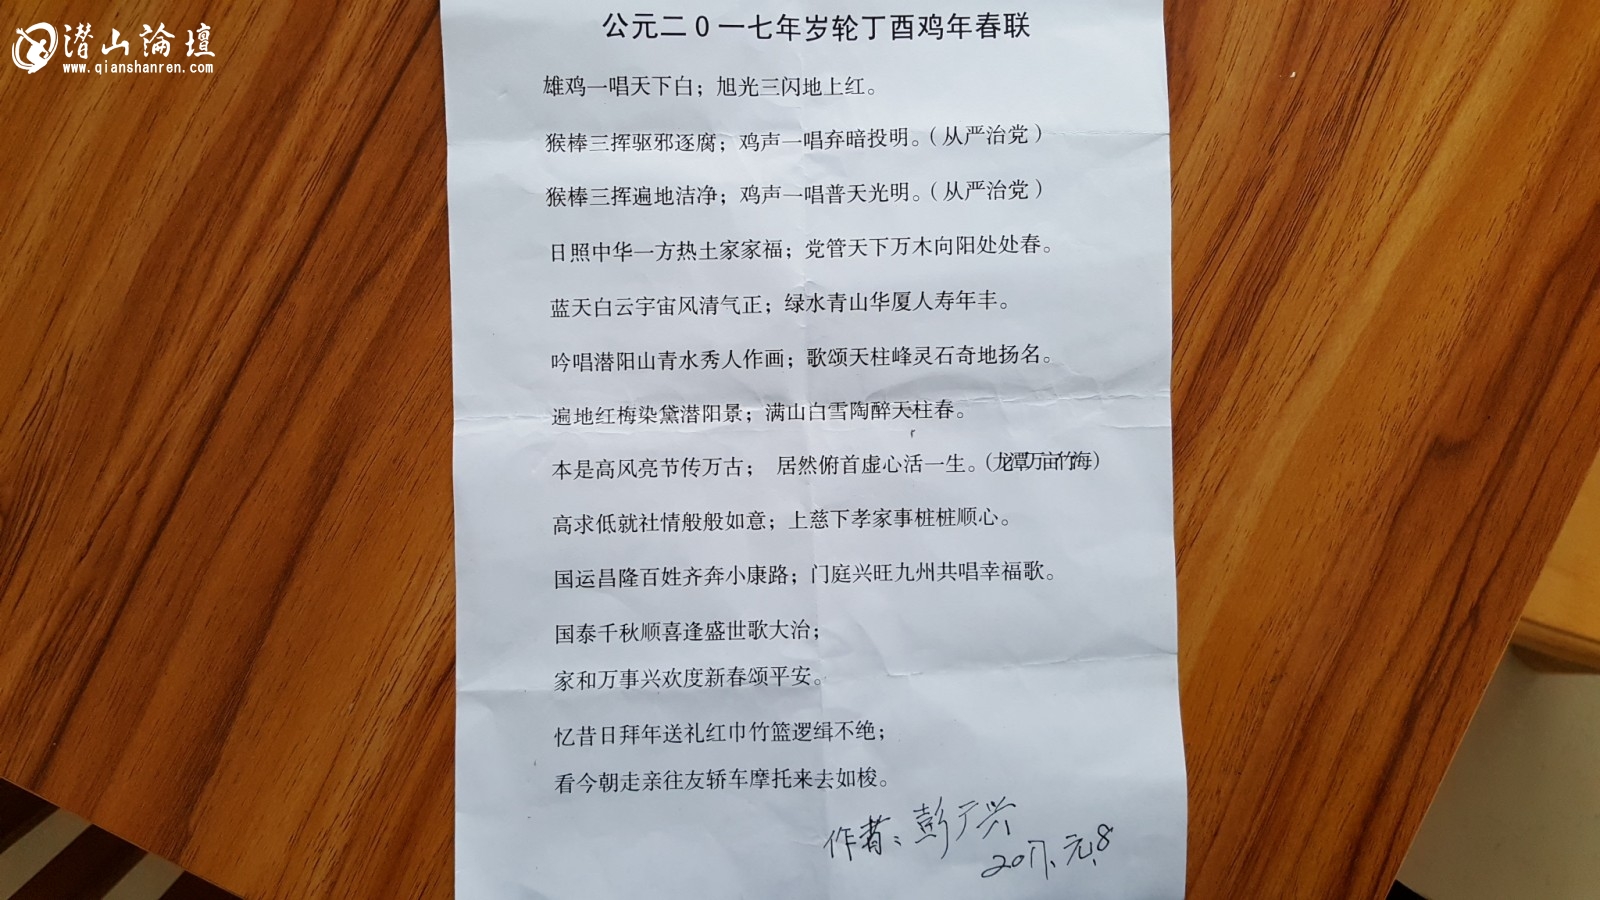 潜山論壇
www.qianshanren.com
公元二0一七年岁轮丁酉鸡年春联
雄鸡一唱天下白；旭光三闪地上红。
猴棒三挥驱邪逐腐；鸡声一唱弃暗投明。（从严治党）
猴棒三挥遍地洁净；鸡声一唱普天光明。（从严治党）
日照中华一方热土家家福；党管天下万木向阳处处春。
蓝天白云宇宙风清气正；绿水青山华厦人寿年丰。
吟唱潜阳山青水秀人作画；歌颂天柱峰灵石奇地扬名。
遍地红梅染黛潜阳景；满山白雪陶醉天柱春。
本是高风亮节传万古； 居然俯首虚心活一生。（龙潭万亩竹海）
高求低就社情般般如意；上慈下孝家事桩桩顺心。
国运昌隆百姓齐奔小康路；门庭兴旺九州共唱幸福歌。
国泰千秋顺喜逢盛世歌大治；
家和万事兴欢度新春颂平安。
忆昔日拜年送礼红巾竹篮逻缉不绝；
看今朝走亲往友轿车摩托来去如梭。
作者：彭广兴
2017.元.8